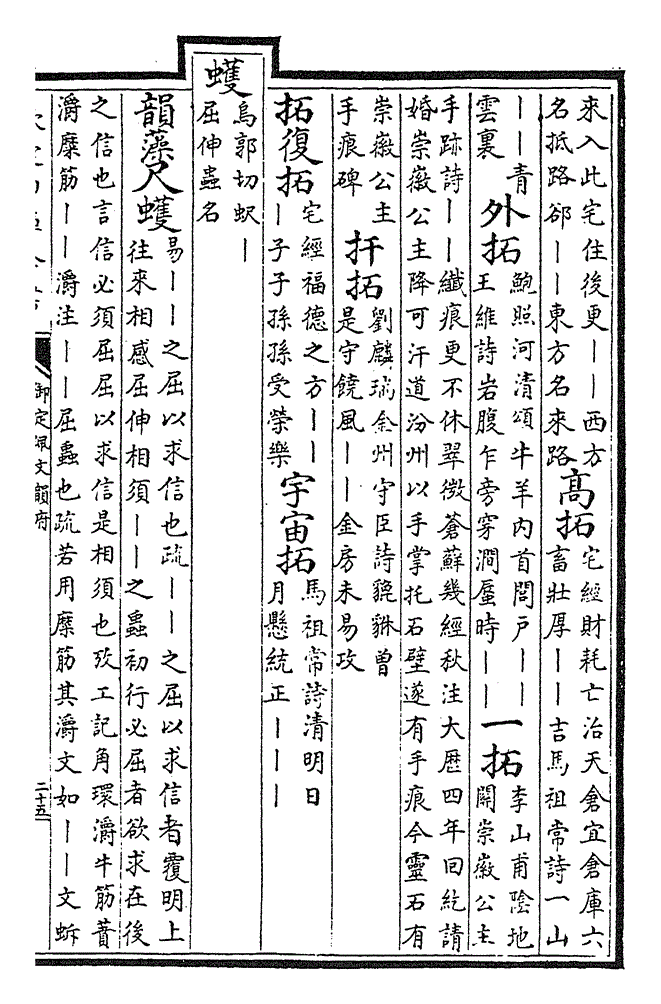 來入此宅住後更丨丨西方
名抵路郤丨丨東方名來路
高拓
宅經財耗亡治天倉宜倉庫六
畜壯厚丨丨吉馬祖常詩一山
丨丨青
雲裏
外拓
鮑照河清頌牛羊內首閭戶丨丨
王維詩岩腹乍旁穿澗蜃時丨丨
一拓
李山甫陰地
關崇徽公主
手跡詩丨丨纖痕更不休翠微蒼蘚幾經秋注大厯四年回紇請
婚崇徽公主降可汗道汾州以手掌托石壁遂有手痕今靈石有
崇徽公主
手痕碑
扞拓
劉麟瑞金州守臣詩貔貅曽
是守饒風丨丨金房未易攻
拓復拓
宅經福德之方丨丨
丨子子孫孫受榮樂
宇宙拓
馬祖常詩清明日
月懸統正丨丨丨
蠖
烏郭切蚇丨
屈伸蟲名
韻藻尺蠖
易丨丨之屈以求信也疏丨丨之屈以求信者覆明上
往來相感屈伸相須丨丨之蟲初行必屈者欲求在後
之信也言信必須屈屈以求信是相須也攷工記角環灂牛筋蕡
灂糜筋丨丨灂注丨丨屈蟲也疏若用糜筋其灂文如丨丨文蚸
御定佩文韻府
二十五